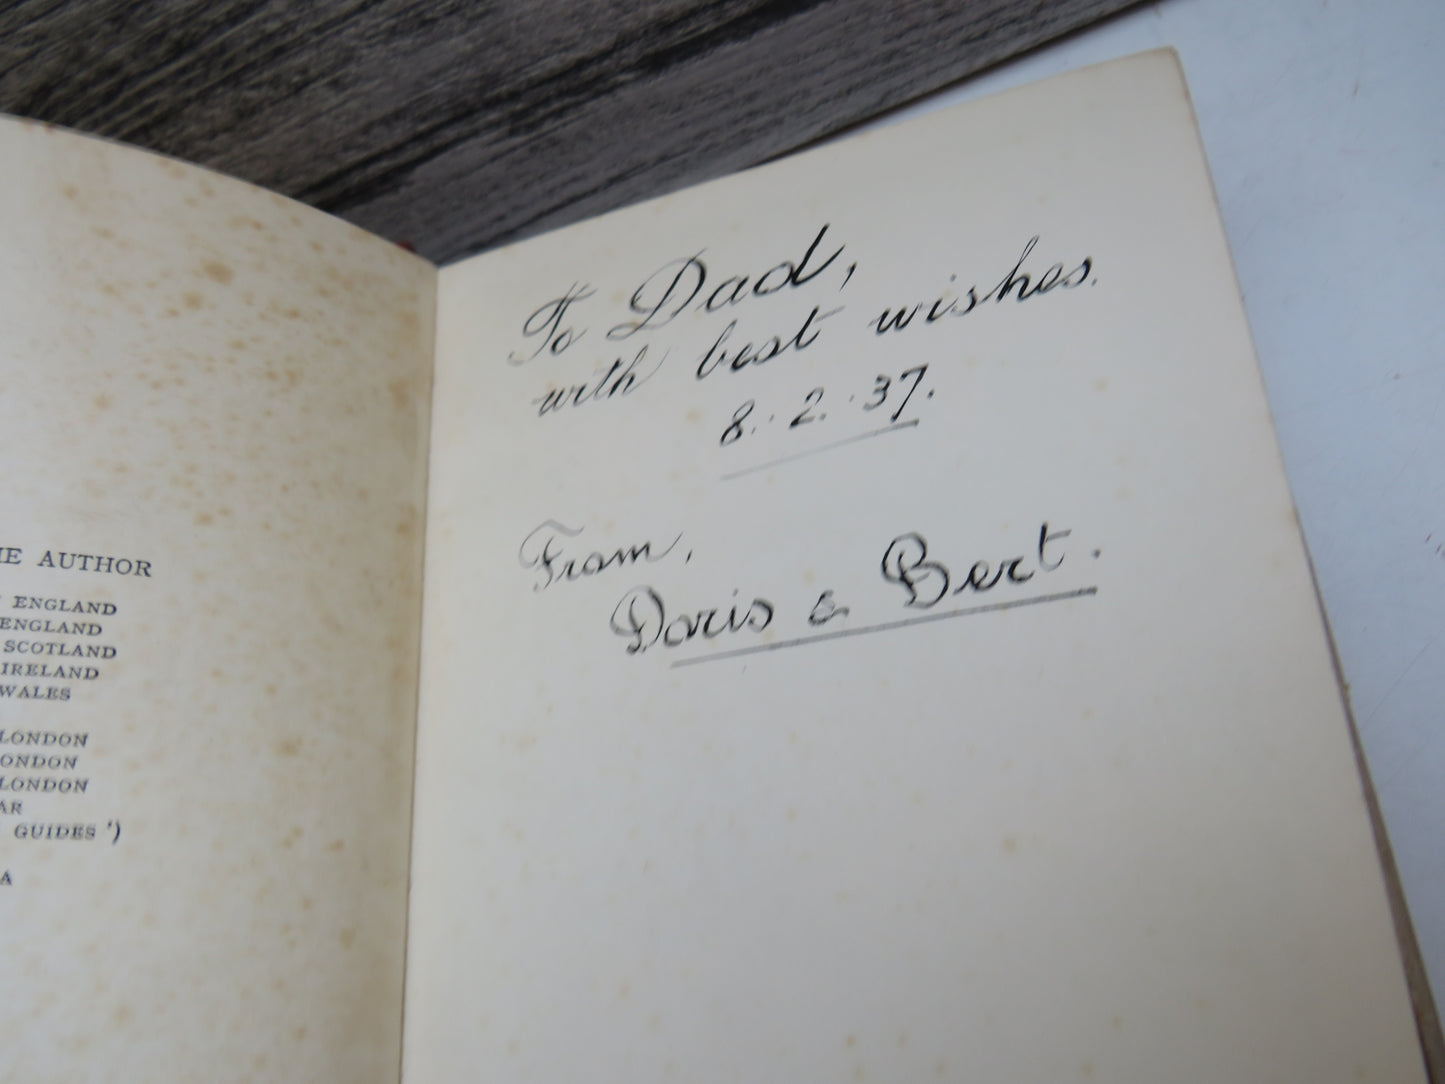 AUTHOR
ENGLAND
ENGLAND
SCOTLAND
IRELAND
WALES
LONDON
LONDON
LONDON
GUIDES ')
To Dad,
with best wishes.
8.2.37.
From,
Doris & Bert.